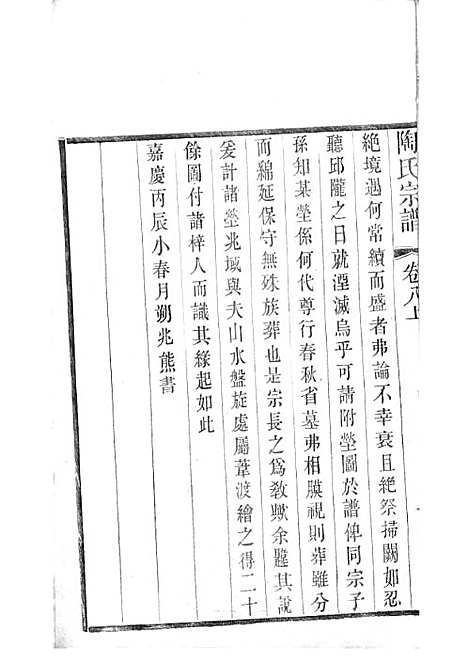 陶氏宗譜 卷八上
絶境遇何常續而盛者弗論不幸衰且絶祭掃闕如忍
聽邱隴之日就湮滅烏乎可請附塋圖於譜俾同宗子
孫知某塋係何代尊行春秋省墓弗相膜視則葬雖分
而綿延保守無殊族葬也是宗長之爲敎歟余韙其說
爰計諸塋兆域與夫山水盤旋處屬葦渡繪之得二十
餘圖付諸梓人而識其緣起如此
嘉慶丙辰小春月朔兆熊書